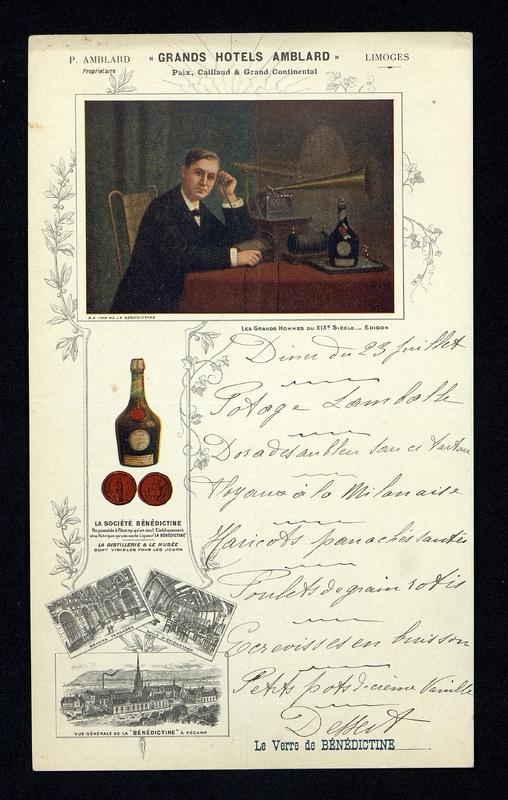 P. AMBLARD
Propriétaire
« GRANDS HOTELS AMBLARD »
LIMOGES
Paix, Caillaud & Grand Continental
LES GRANDS HOMMES DU XIXe SIÈCLE... EDISON
Diner du 23 Juillet
Potage Lamballe
Dorades au bleu sauce tartare
Noyaux à la Milanaise
Haricots panachés sautés
Poulets de grain rotis
Ecrevisses en buisson
Petits pots de crème Vanille
Dessert
Le Verre de BÉNÉDICTINE
LA SOCIÉTÉ BÉNÉDICTINE
Ne possède à Fécamp qu'un seul Etablissement
et ne Fabrique qu'une seule Liqueur LA BÉNÉDICTINE
LA DISTILLERIE & LE MUSÉE
SONT VISIBLES TOUS LES JOURS
VUE GÉNÉRALE DE LA "BÉNÉDICTINE" A FÉCAMP